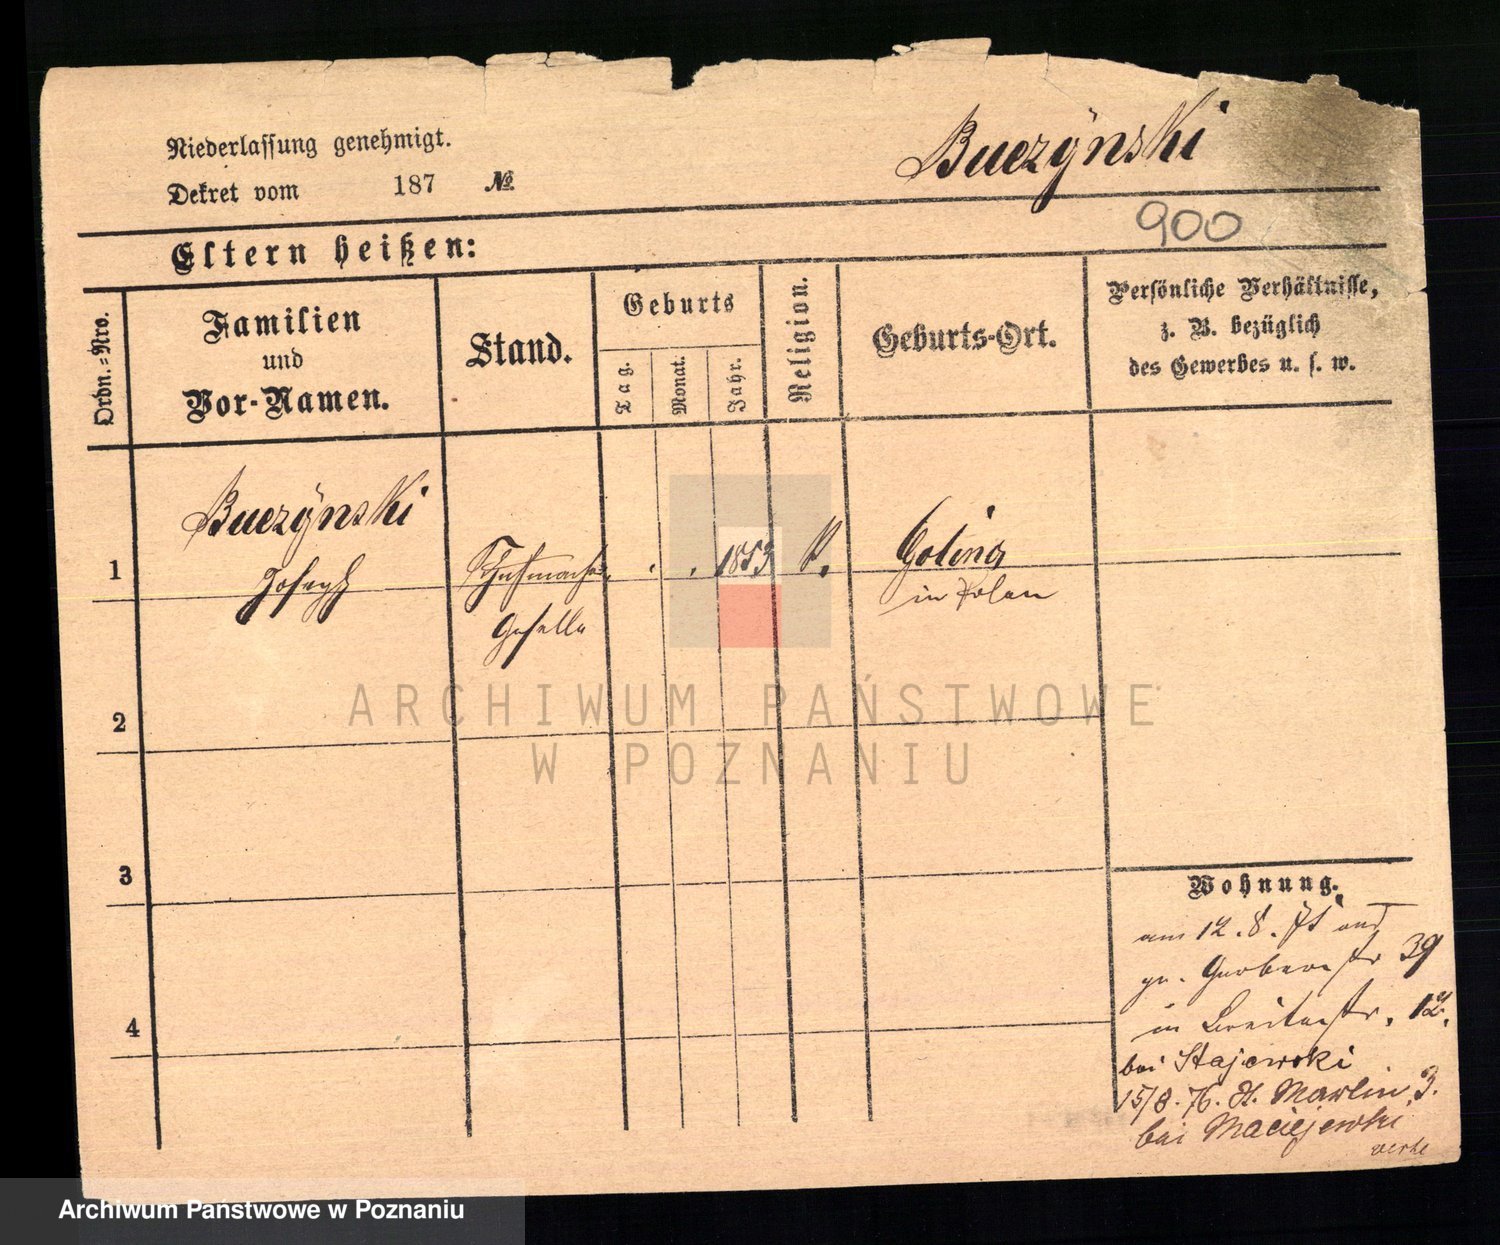 Niederlassung genehmigt.
Dekret vom 187 №
Buczÿnski
900
Eltern heißen:
Ordn.-Nro.
Familien
und
Vor-Namen.
Stand.
Geburts
Tag.
Monat.
Jahr.
Religion.
Geburts-Ort.
Persönliche Verhältnisse,
z. B. bezüglich
des Gewerbes u. s. w.
Buczÿnski
Joseph
Geselle
1853
Goling
in Polen
1
2
3
4
ARCHIWUM PAŃSTWOWE
W POZNANIU
Wohnung.
am 12. 8. 75 aus
gr. Gerberstr 39
in Breitestr. 12.
bei Stajewski
15/8. 76. St. Martin 3.
bei Maciejewski
verte
Archiwum Państwowe w Poznaniu